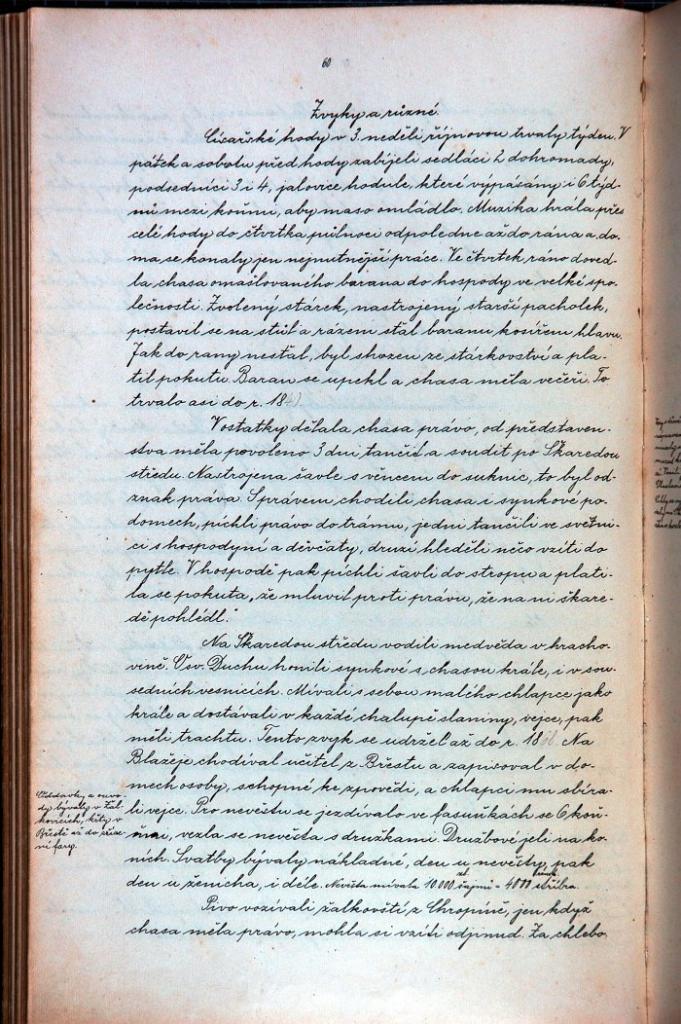 60
Zvyky a různé.
Císařské hody v 3. neděli říjnovou trvaly týden. V
pátek a sobotu před hody zabíjeli sedláci 2 dohromady,
podsedníci 3 i 4, jalovice hodule, které vypásány i 6 týd-
nů mezi koňmi, aby maso omládlo. Muzika hrála přes
celé hody do čtvrtka půlnoci odpoledne až do rána a do-
ma se konaly jen nejnutnější práce. Ve čtvrtek ráno doved-
la chasa omašlovaného barana do hospody ve velké spo-
lečnosti. Zvolený stárek, nastrojený starší pacholek,
postavil se na stůl a rázem sťal baranu kosířem hlavu.
Jak do rany nesťal, byl shozen ze stárkovství a pla-
til pokutu. Baran se upekl a chasa měla večeři. To
trvalo asi do r. 18
Vostatky dělala chasa právo, od představen-
stva měla povoleno 3 dni tančit a soudit po Škaredou
středu. Nastrojena šavle s věncem do suknic, to byl od-
znak práva. S právem chodili chasa i synkové po
domech, píchli právo do trámu, jedni tančili ve světni-
ci s hospodyní a děvčaty, druzí hleděli něco vzíti do
pytle. V hospodě pak píchli šavli do stropu a plati-
la se pokuta, „že mluvil proti právu, že na ni škare-
dě pohlédl."
Na Škaredou středu vodili medvěda v hracho-
vině. O sv. Duchu honili synkové s chasou krále, i v sou-
sedních vesnicích. Mívali s sebou malého chlapce jako
krále a dostávali v každé chalupě slaniny, vejce, pak
měli trachtu. Tento zvyk se udržel až do r. 18 Na
Blažeje chodíval učitel z Břestu a zapisoval v do-
mech osoby, schopné ke zpovědi, a chlapci mu sbíra-
li vejce. Pro nevěstu se jezdívalo ve fasuňkách se 6 koň-
mi, vezla se nevěsta s družkami. Družbové jeli na ko-
ních. Svatby bývaly nákladné, den u nevěsty, pak
den u ženicha, i déle. Nevěsta mívala 10.000 zl. šajnů = 4000 stříbra.
Pivo vozívali žalkovští z Chropině, jen když
chasa měla právo, mohla si vzíti odjinud. Za chlebo-
Oddavky a
dy bývaly v Žal-
kovicích, křty v
Břestě až do
ní fary.